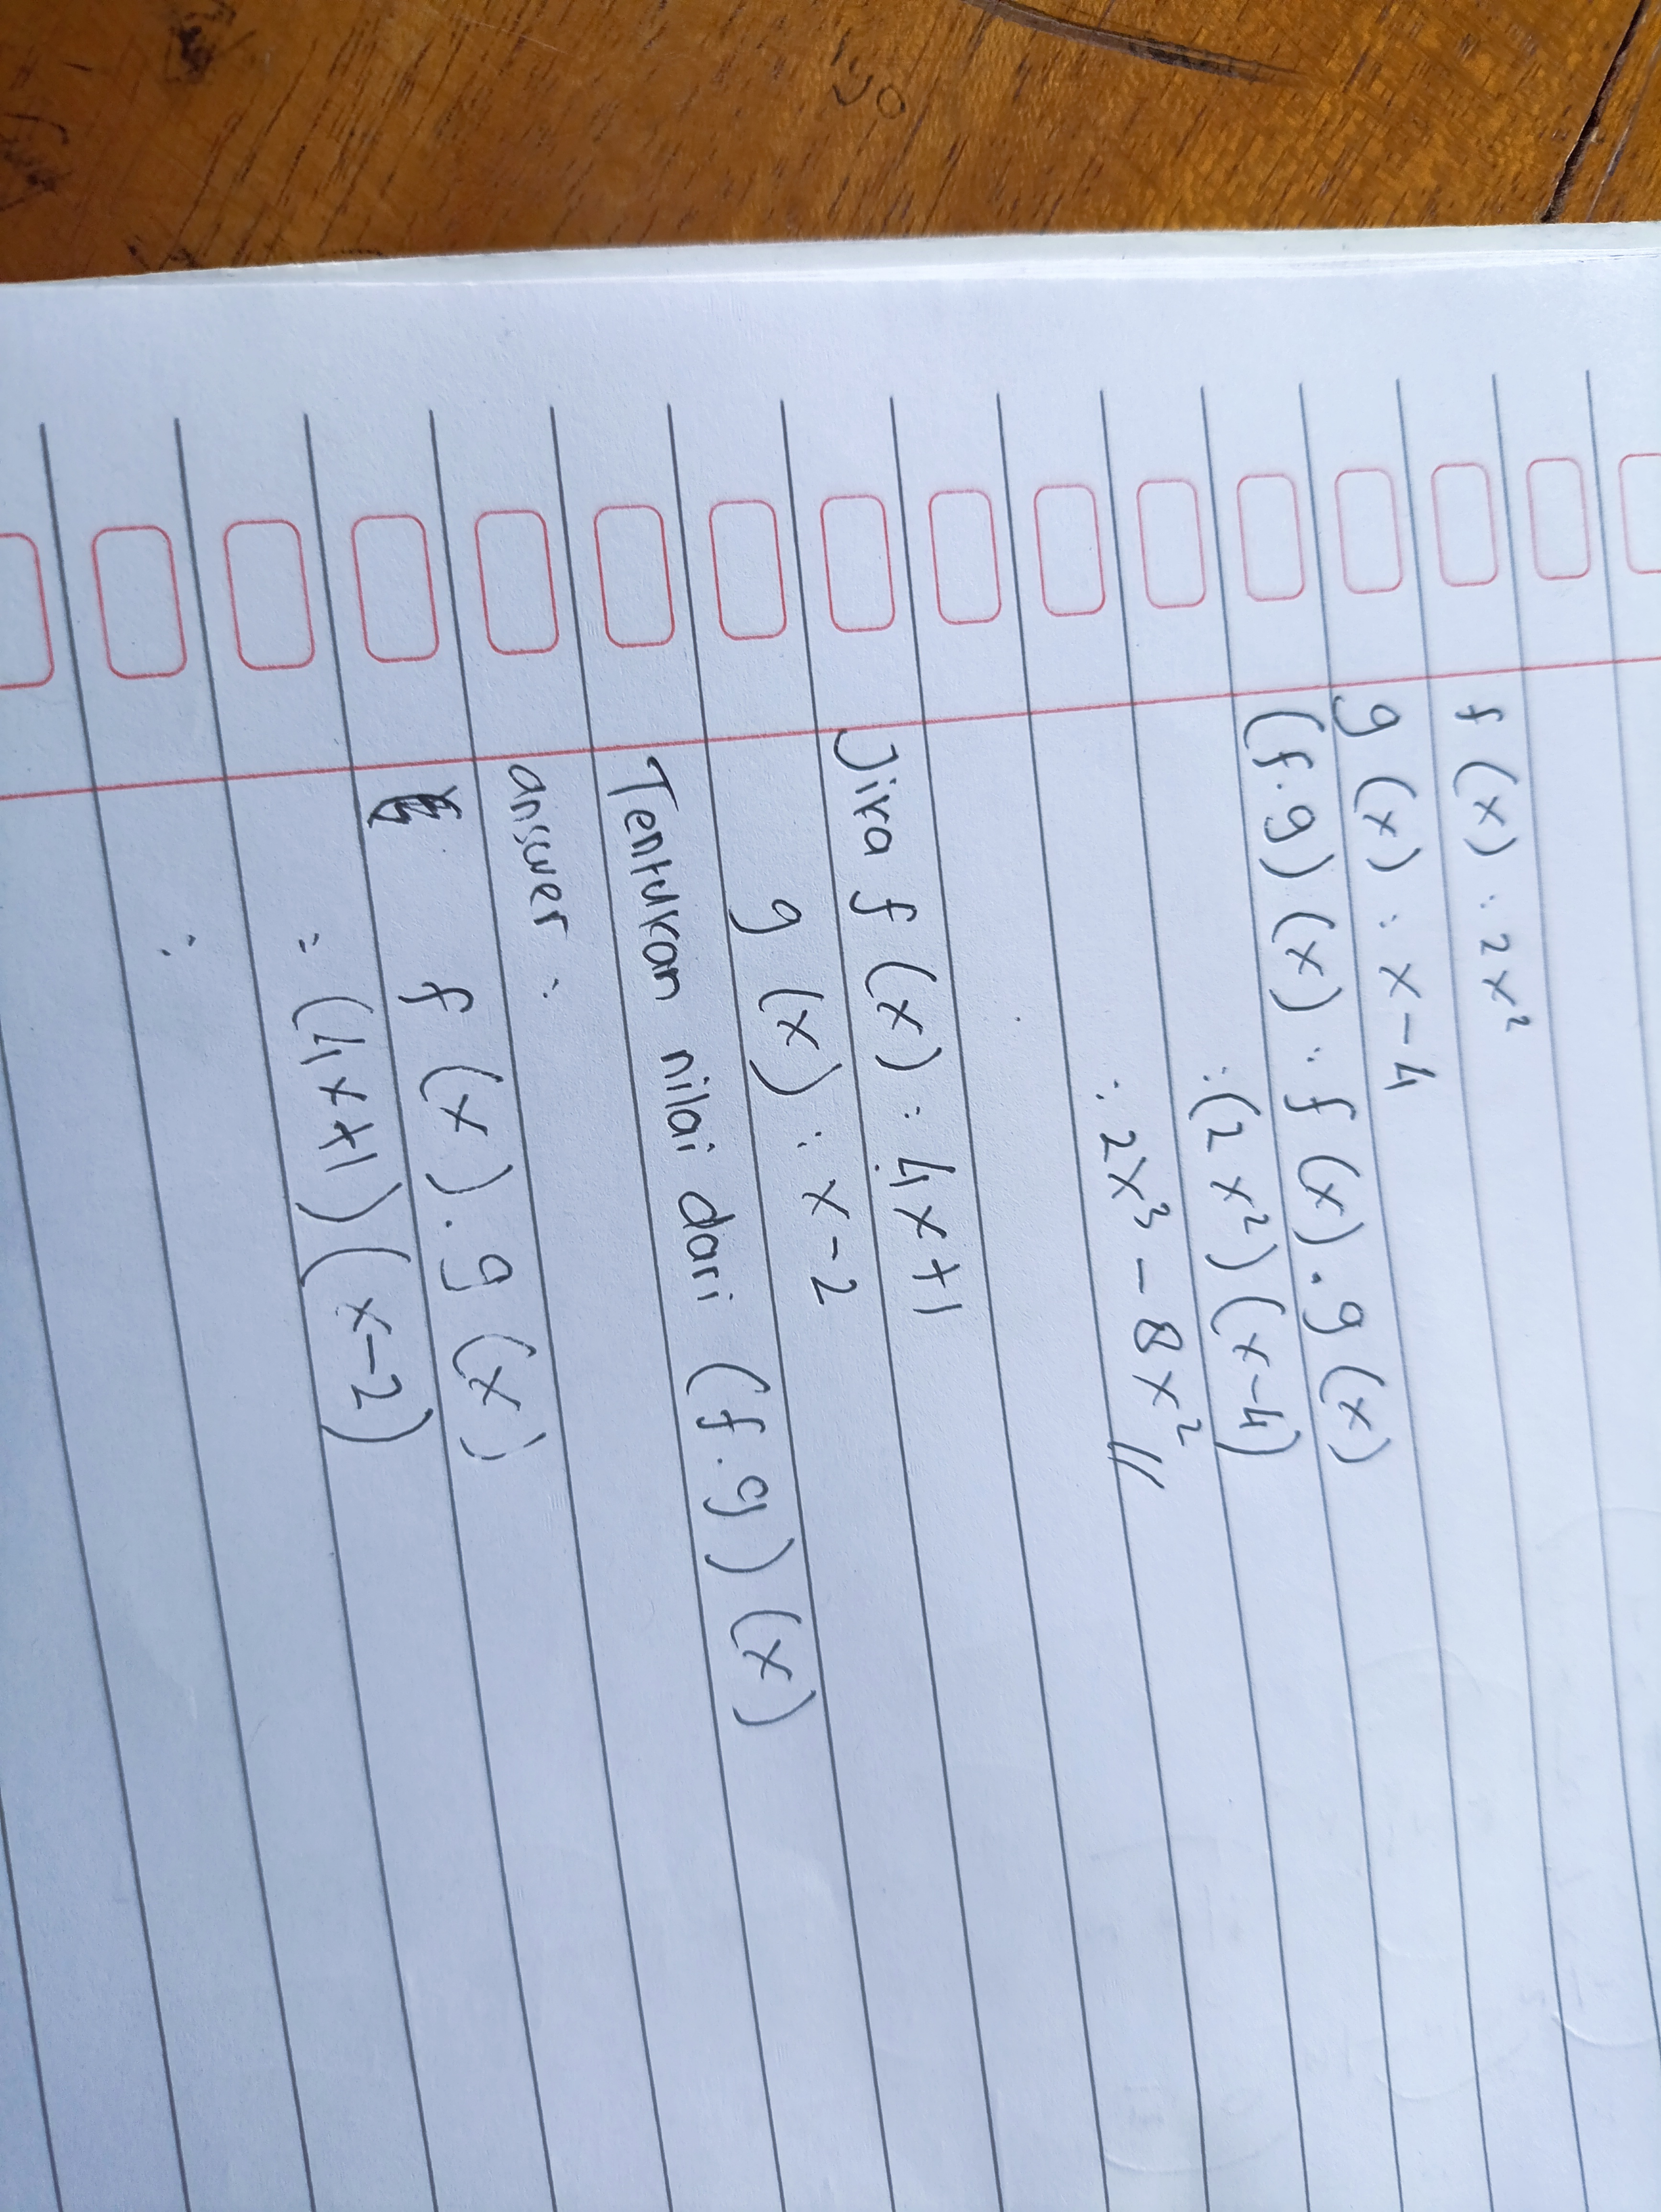 f (x) : 2x²
g (x) : x - 4
(f . g) (x) : f (x) . g (x)
: (2x²) (x-4)
: 2x³ - 8x² //
Jika f (x) : 4x+1
g (x) : x-2
Tentukan nilai dari (f . g) (x)
answer :
f (x) . g (x)
= (4x+1) (x-2)
: